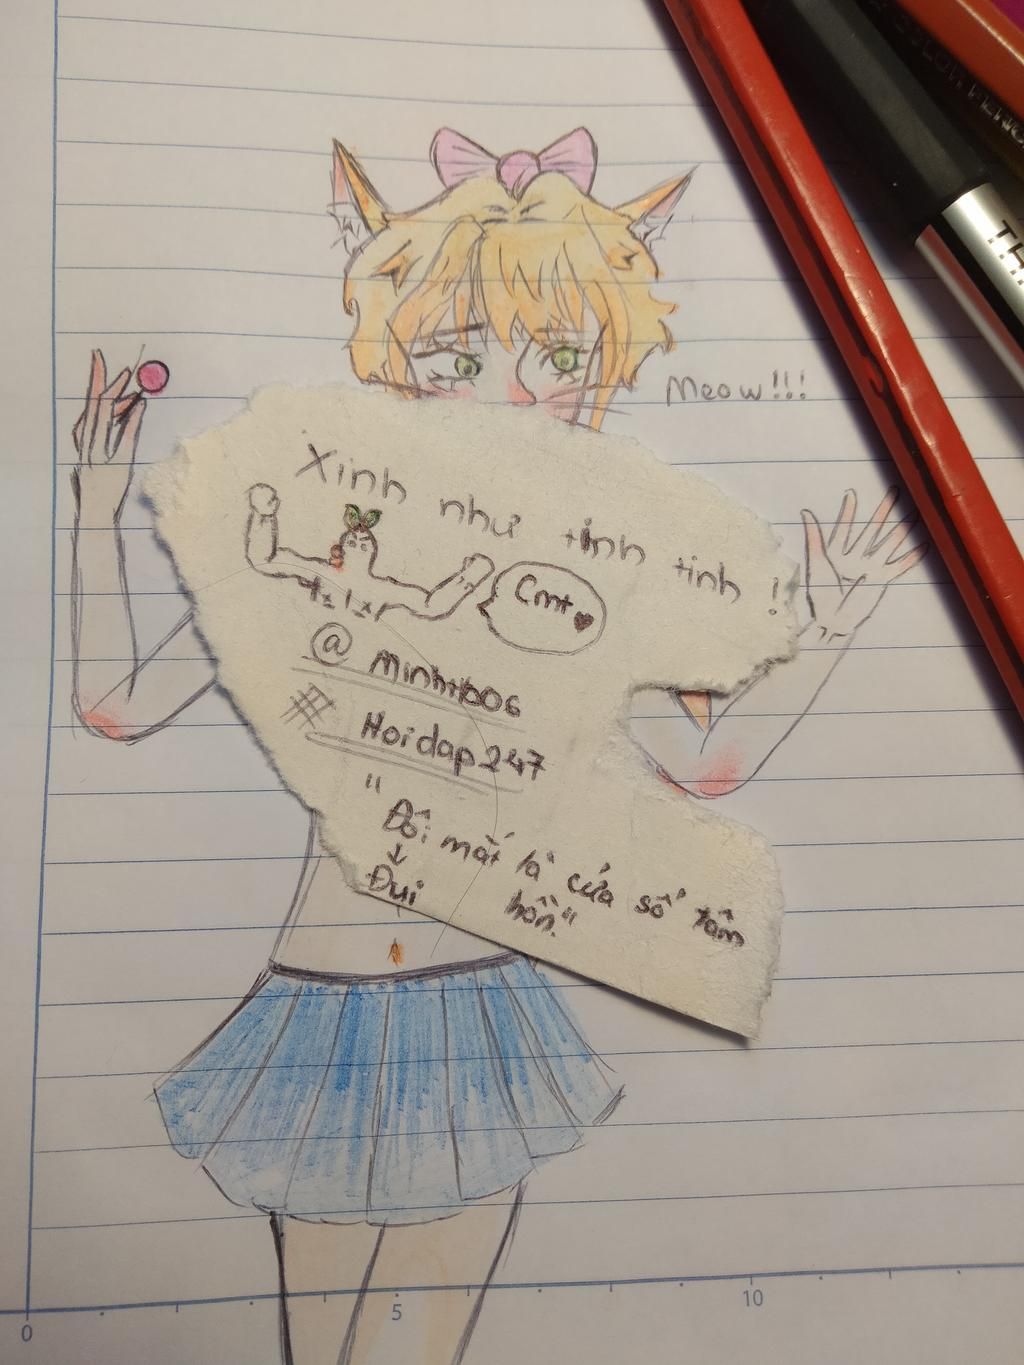 Meow!!!
Xinh như tinh tinh !
Cmt
@ Minhtb06
# Hoidap247
"Đôi mắt là cửa sổ tâm
↓
Đui hồn."
0 5 10